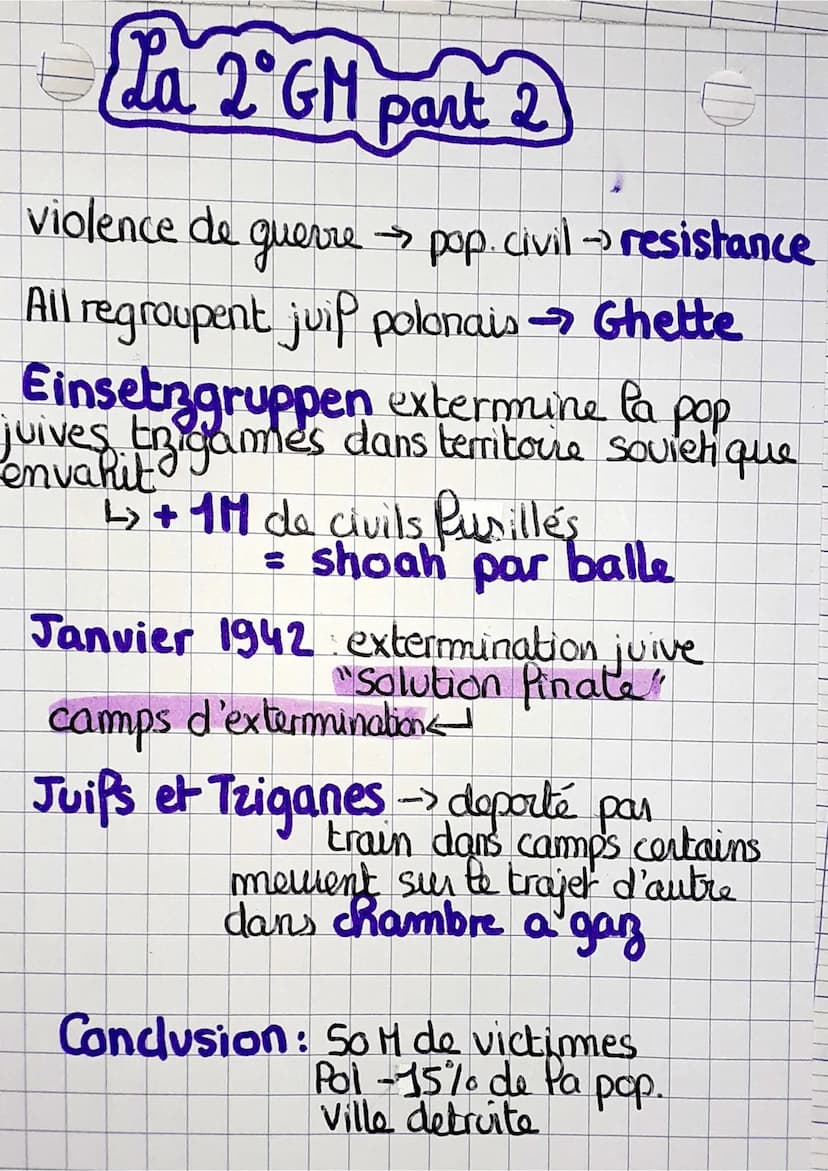 La 2° GM part 2
violence de guerre → pop. civil → resistance
All regroupent juif polonais → Ghette
Einsetzgruppen extermine la pop
juives tzigannes dans territoire sovietique
envahit
↳ + 1M de civils fusillés
= shoah par balle
Janvier 1942 : extermination juive
"Solution finale"
camps d'extermination ↵
Juifs et Tziganes → deporté par
train dans camps certains
meurent sur le trajet d'autre
dans chambre a gaz
Conclusion : 50 M de victimes
Pol -15% de la pop.
Ville detruite